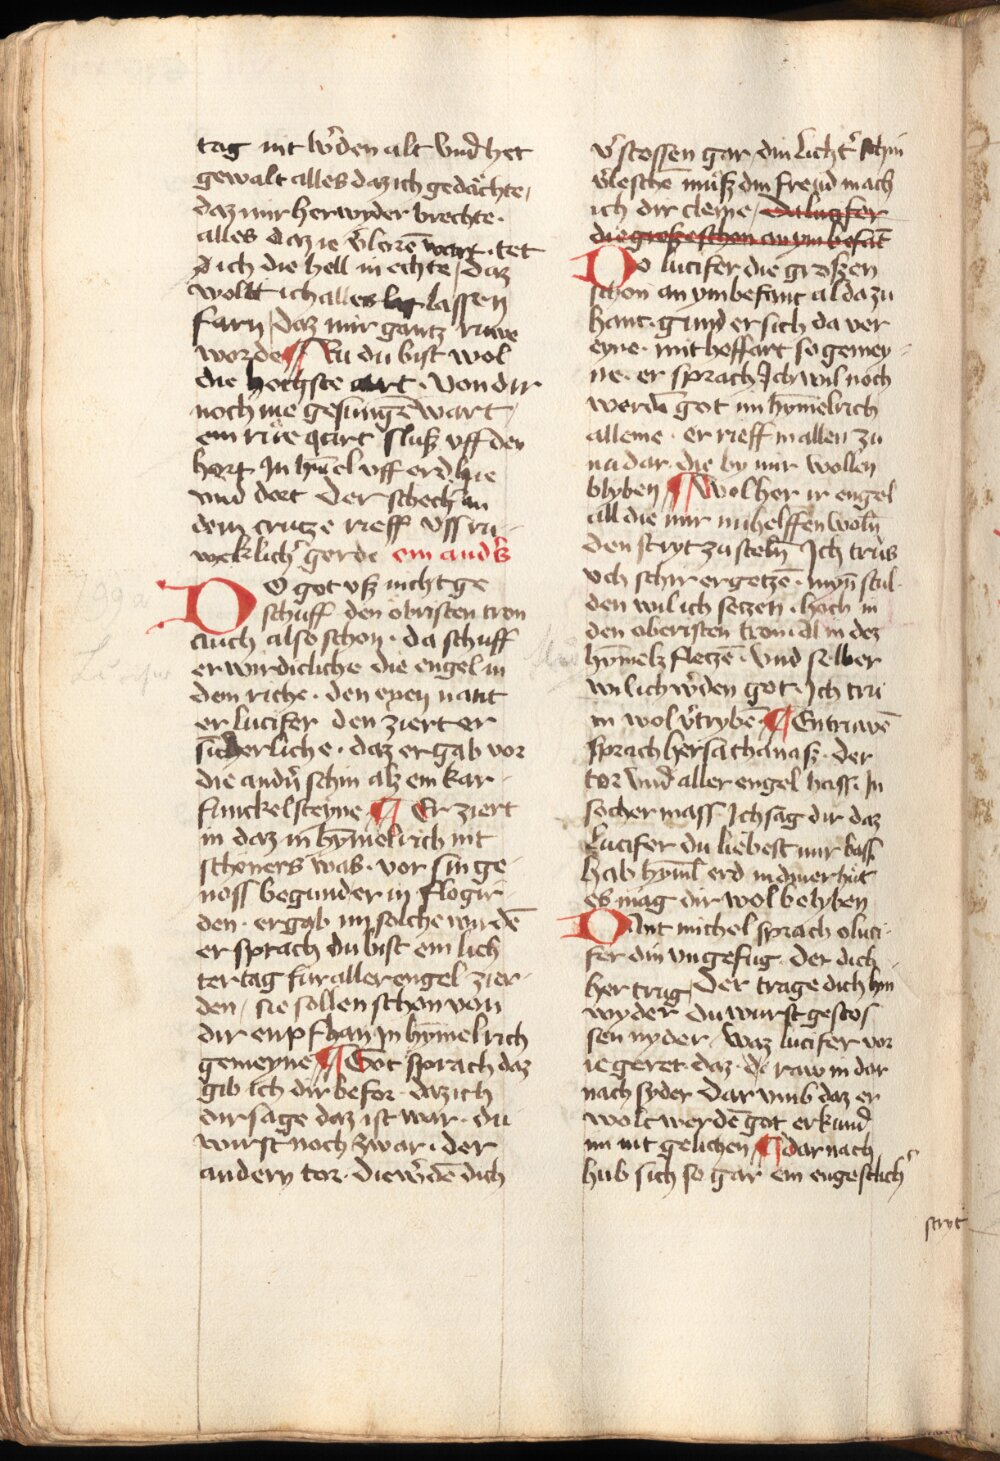 tag nit w͛den alt vnd het
gewalt alles daz ich gedächte /
daz mir herwyder brechte ·
alles daz ie v͛lorē wart · tet
ich die hell in echte / daz
wollt ich alles lassen
farn / daz mir gantz ruwe
worde ¶ Nu du bist wol
die hochste art · von dir
noch nie gesungē wart /
ein rure qart sluß vff den
hort In hīmel vff erd hie
vnd dort Der schecher an
dem crutze rieff vss ru
weklich͛ gerde ein and͛s
DO got vß nicht ge
schuff den obristen tron
auch also schon · da schuff
er wirdicliche die engel in
dem riche · den eynen nant
er lucifer den ziert er
sicherliche · daz er gab vor
die andn̄ schin alz ein kar
funckelsteyne ¶ Er ziert
in daz in hȳmelrich nit
schöners was · vor sin ge
noss begunder in flogir
den · er gab im solche wirdē
er sprach du bist ein liech
ter tag für aller engel zier
den / sie sollen schon von
dir enpfhan In hymelrich
gemeyne ¶ Got sprach daz
gib ich dir befor · daz ich
dir sage daz ist war · du
wurst noch zwar · der
andern tor · die w͛dē dich
v͛stossen gar / din liecht͛ schin
v͛leschē müß din freud mach
ich dir cleyne / Da lucifer
die große schon an ym befāt
DO lucifer die großen
schon an ym befant alda zu
hant · gund er sich da ver
eyne · mit hoffart so gemey
ne · er sprach Ich wil noch
werdn̄ got im hȳmelrich
alleine · er rieff in allen zu
na dar · die by mir wollen
blyben ¶ Wolher ir engel
all die mir nu helffen woln̄
den stryt zu steln̄ Ich trüs
vch schir ergetzē · myn̄ stul
den wil ich setzen · hoch in
den oberisten tron al in dez
hȳmelz fletzē · vnd selber
wil ich w͛den got · Ich tru
in wol v͛trybē ¶ Entruwē
sprach her sathanaß · der
tor vnd aller engel hass · In
socher mass Ich sag dir daz
Lucifer du liebest mir bass
hab hȳml̄ erd in diner hůt
es mag dir wol belyben
SAnt michel sprach o luci
fer din vngefug · der dich
her trug Der trage dich hin
wyder du wurst gestos
sen nyder / waz lucifer vor
ie geret · daz · de raw in dar
nach syder Dar vmb daz er
wolt werdē got erkund
im nit gelichen ¶ dar nach
hub sich so gar ein engestlich͛
stryt